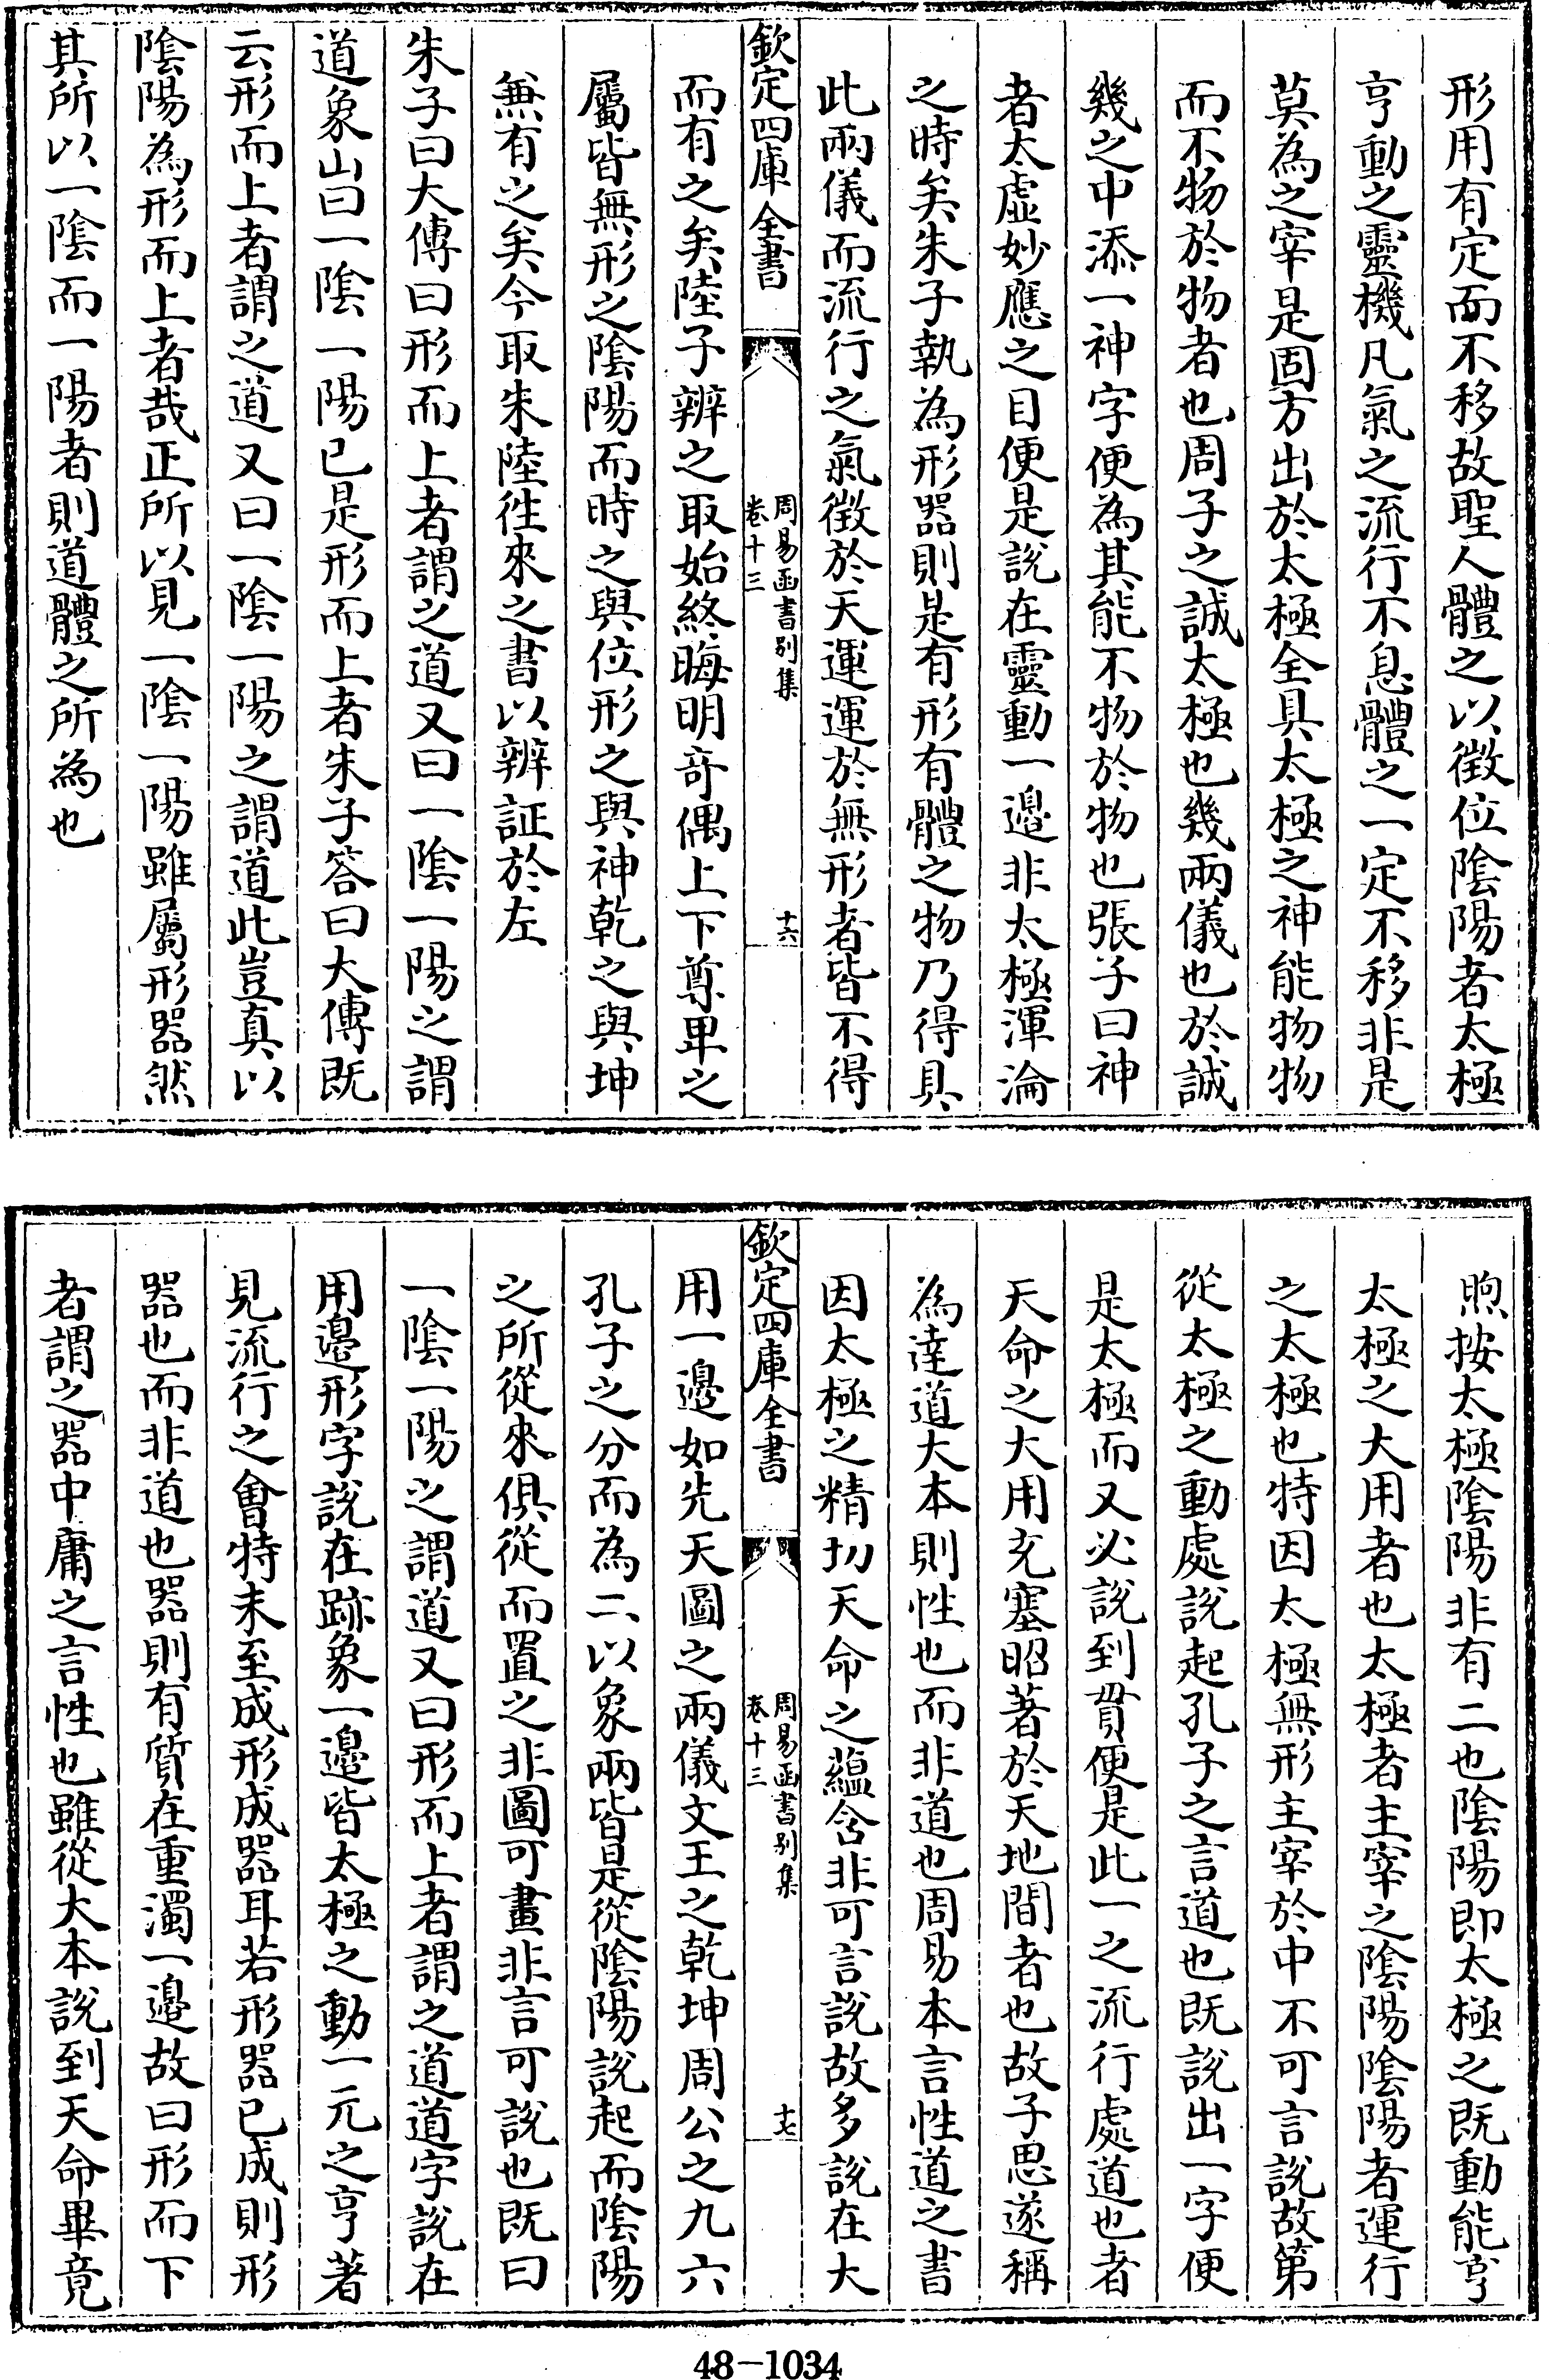 形用有定而不移故聖人體之以徵位陰陽者太極
亨動之靈機凡氣之流行不息體之一定不移非是
莫為之宰是固方出於太極全具太極之神能物物
而不物於物者也周子之誠太極也幾兩儀也於誠
幾之中添一神字便為其能不物於物也張子曰神
者太虛妙應之目便是說在靈動一邊非太極渾淪
之時矣朱子執為形器則是有形有體之物乃得具
此兩儀而流行之氣徵於天運運於無形者皆不得
欽定四庫全書
周易函書別集
卷十三
十六
而有之矣陸子辨之取始終晦明竒偶上下尊卑之
屬皆無形之陰陽而時之與位形之與神乾之與坤
無有之矣今取朱陸徃來之書以辨証於左
朱子曰大傳曰形而上者謂之道又曰一陰一陽之謂
道象山曰一陰一陽已是形而上者朱子答曰大傳既
云形而上者謂之道又曰一陰一陽之謂道此豈真以
陰陽為形而上者哉正所以見一陰一陽雖屬形器然
其所以一陰而一陽者則道體之所為也
煦按太極陰陽非有二也陰陽即太極之既動能亨
太極之大用者也太極者主宰之陰陽陰陽者運行
之太極也特因太極無形主宰於中不可言說故第
從太極之動處說起孔子之言道也既說出一字便
是太極而又必說到貫便是此一之流行處道也者
天命之大用充塞昭著於天地間者也故子思遂稱
為達道大本則性也而非道也周易本言性道之書
因太極之精切天命之蘊含非可言說故多說在大
欽定四庫全書
周易函書別集
卷十三
十七
用一邊如先天圖之兩儀文王之乾坤周公之九六
孔子之分而為二以象兩皆是從陰陽說起而陰陽
之所從來俱從而置之非圖可畫非言可說也既曰
一陰一陽之謂道又曰形而上者謂之道道字說在
用邊形字說在跡象一邊皆太極之動一元之亨著
見流行之會特未至成形成器耳若形器已成則形
器也而非道也器則有質在重濁一邊故曰形而下
者謂之器中庸之言性也雖從大本說到天命畢竟
48-1034